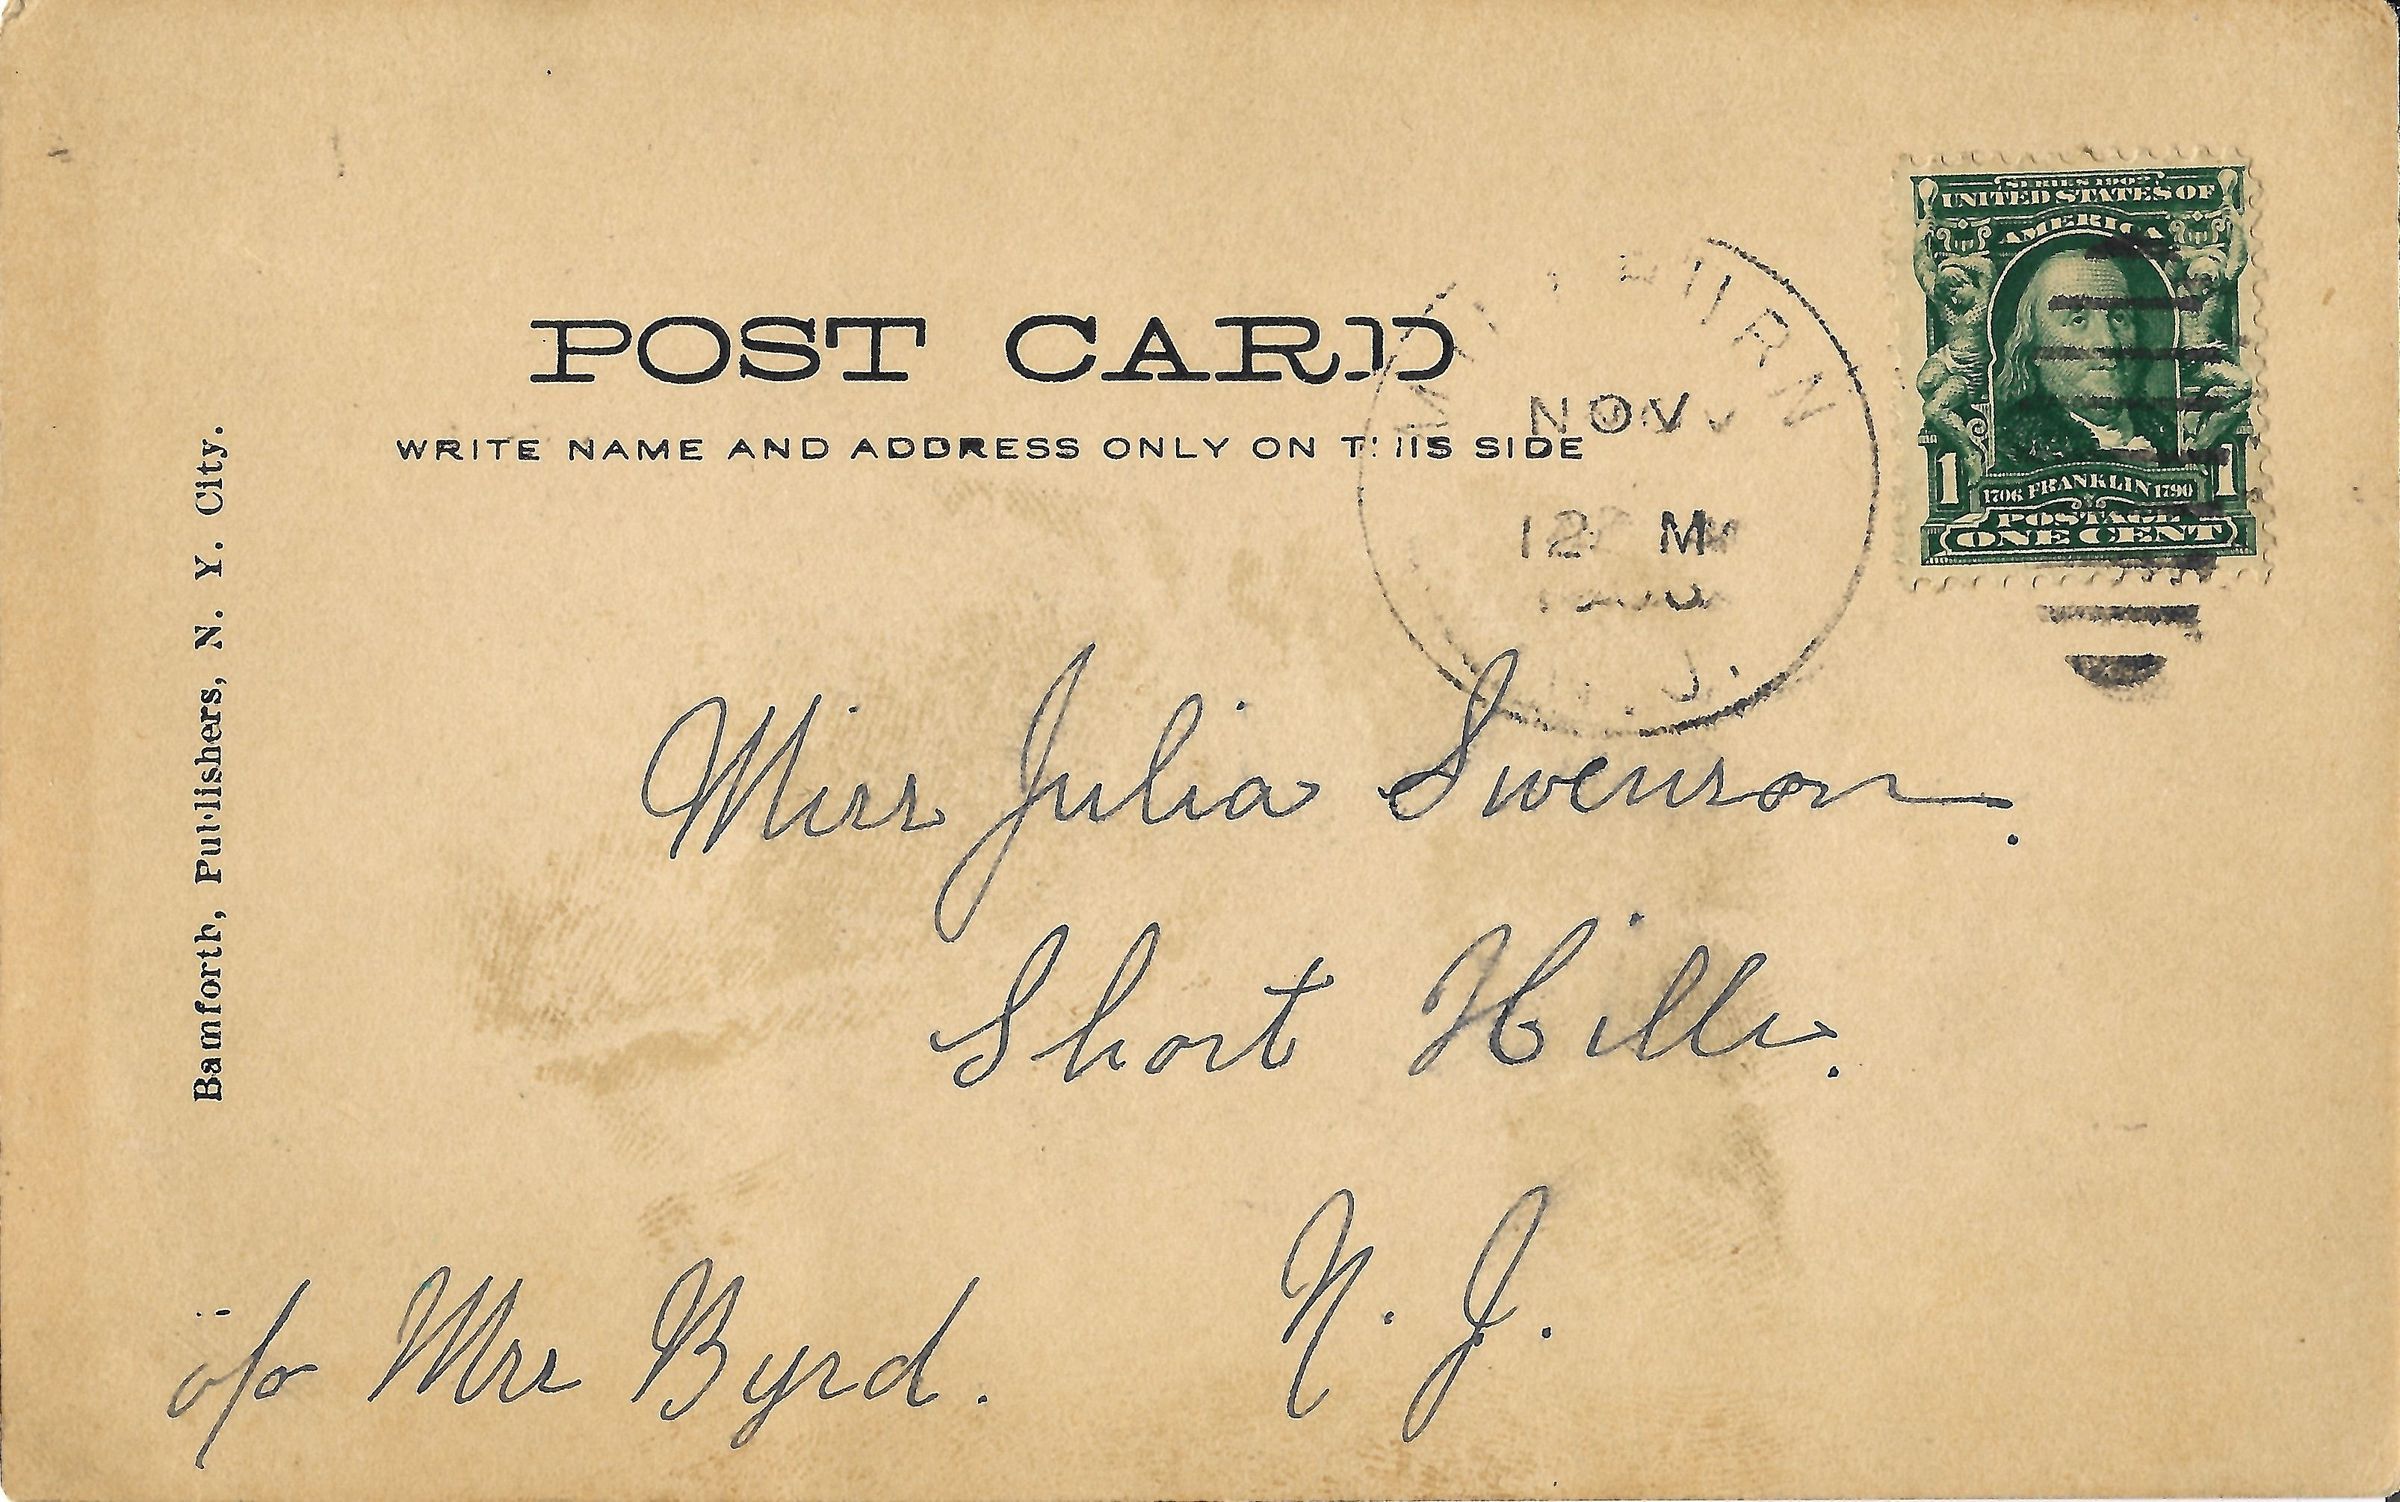 SERIES 1902
UNITED STATES OF
AMERICA
1 1706 FRANKLIN 1790 1
POSTAGE
ONE CENT
POST CARD
WRITE NAME AND ADDRESS ONLY ON THIS SIDE
NOV
12 M
J.
Bamforth, Publishers, N. Y. City.
Miss Julia Swenson.
Short Hills.
N. J.
c/o Mrs Byrd.